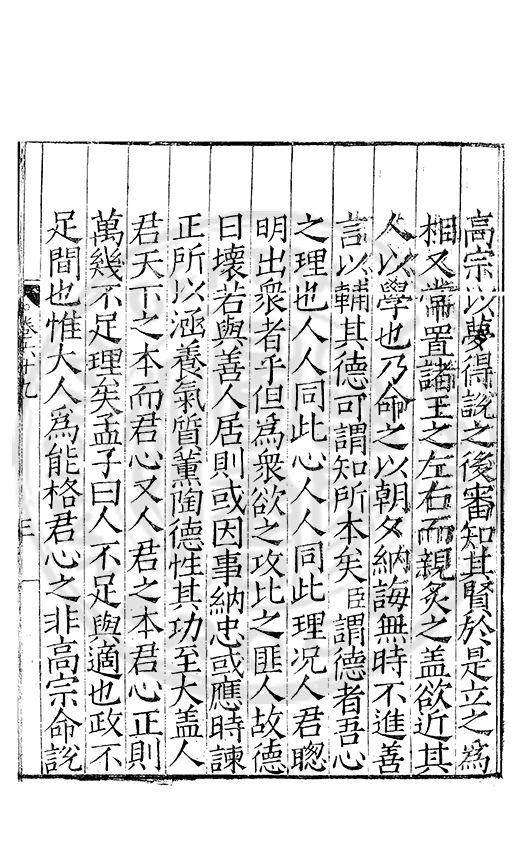 高宗以夢得說之後審知其賢於是立之爲
相又常置諸王之左右而親炙之盖欲近其
人以學也乃命之以朝夕納誨無時不進善
言以輔其德可謂知所本矣臣謂德者吾心
之理也人人同此心人人同此理况人君聰
明出衆者乎但爲衆欲之攻比之匪人故德
日壊若與善人居則或因事納忠或應時諫
正所以涵養氣質薰陶德性其功至大盖人
君天下之本而君心又人君之本君心正則
萬幾不足理矣孟子曰人不足與適也政不
足間也惟大人爲能格君心之非高宗命說
卷六十九
三